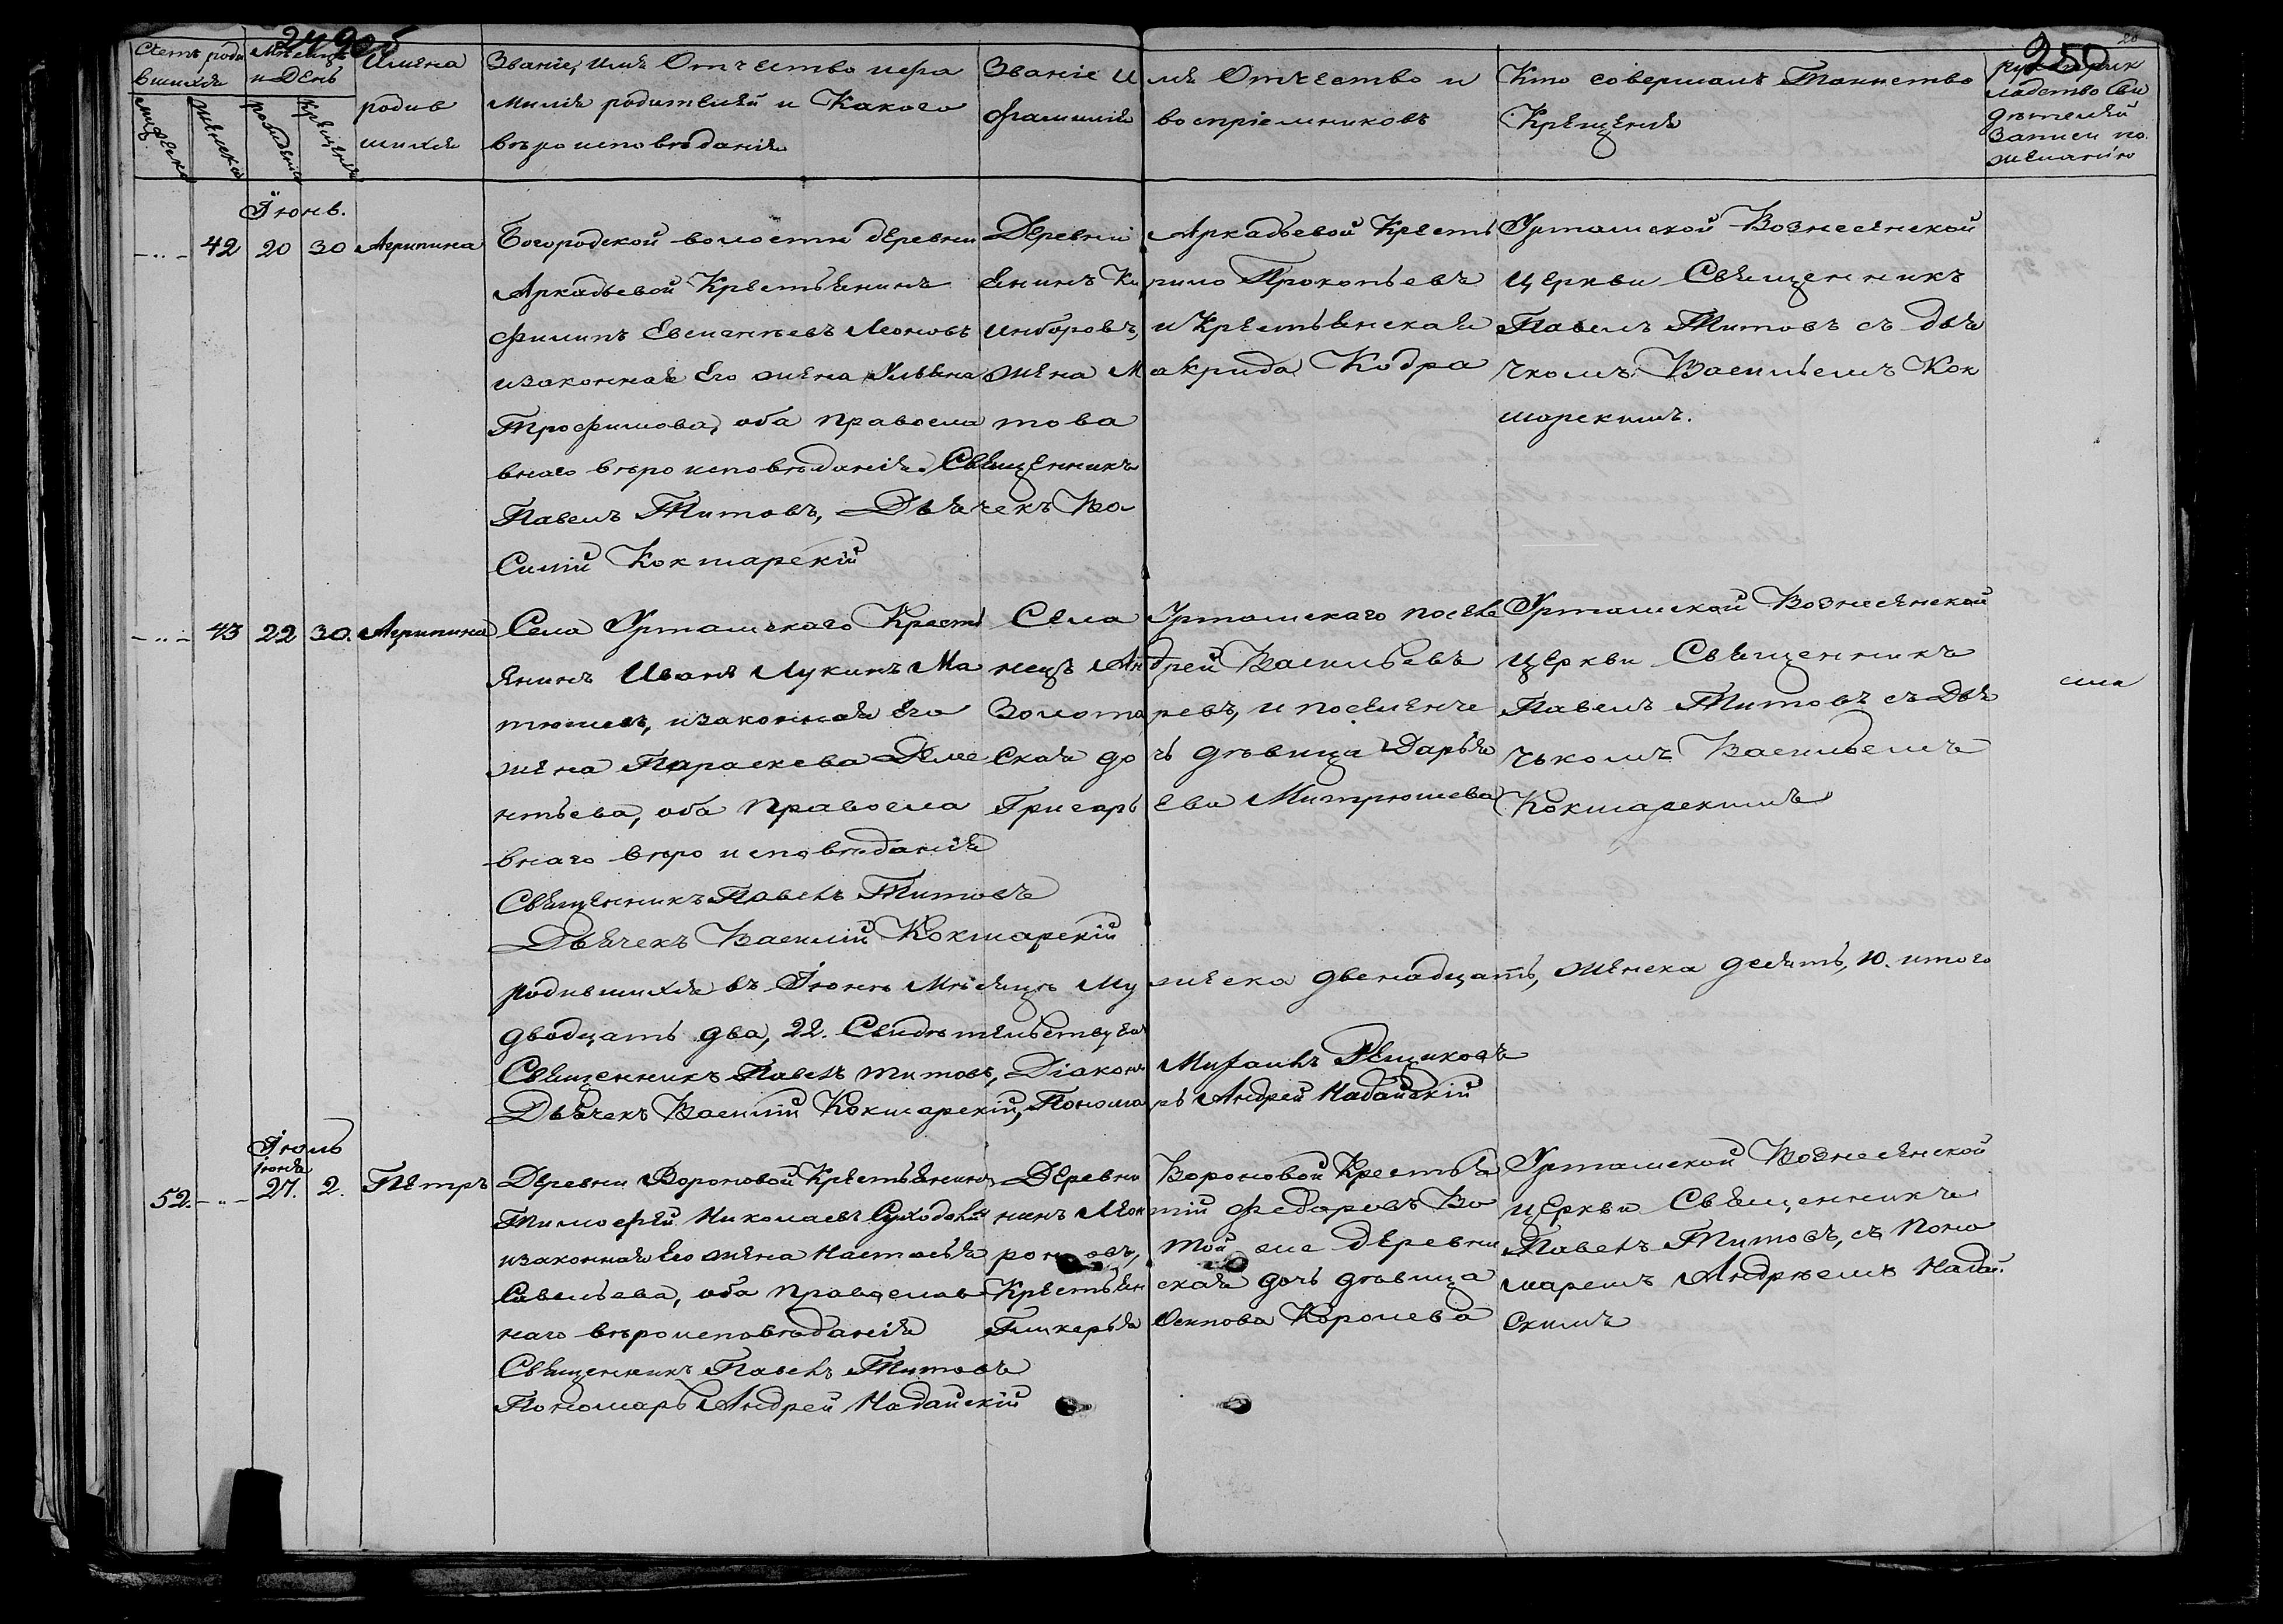 249 об
250
Счетъ роди
вшихся
Мѣсяцъ
и День
Имена
родив
шихся
Званіе, имя Отчество и фа
милія родителей и Какого
вѣроисповѣданія
Званіе И мя Отчество и
фамилія воспріемниковъ
Кто совершалъ Таинство
Крещенія
рукоприк
ладство Сви
дѣтелей
Записи по
желанію
мужеска
женска
рожденія
Крещенія
Іюнь.
-"- 42 20 30 Агрипина
Богородской волости деревни
Аркадьевой Крестьянинъ
Филипъ Евсигнѣевъ Леоновъ
изаконная Его жена Ульяна
Трофимова, оба правосла
внаго вѣроисповѣданія. Священникъ
Павелъ Титовъ, Дьячекъ Ва
Силій Кокшарскій
Деревни Аркадьевой Кресть
Янинъ Ки рило Прокопьевъ
инборовъ, и Крестьянская
жена М акрида Кодра
това
Урташской Вознесенской
Церкви Священникъ
Павелъ Титовъ съ дья
чкомъ Васильемъ Кок
шарскимъ.
-"- 43 22 30. Агрипина
Села Урташскаго Кресть
янинъ Иванъ Лукинъ Ма
тюшевъ, изаконная Его
жена Параскева Деме
нтьева, оба правосла
внаго вѣроисповѣданія
Священникъ Павелъ Титовъ
Дьячекъ Василій Кокшарскій
Села Урташскаго посѣле
нецъ Андрей Васильевъ
Золота ревъ, и поселенче
Ская до чь дѣвица Дарья
Григорь Ева Митрюшева
Урташской Вознесенской
Церкви Священникъ
Павелъ Титовъ съ Дья
чькомъ Васильемъ
Кокшарскимъ
родившихся въ Іюнѣ Мѣсяцѣ Му жеска двенадцать, Женска десять, 10. итого
двадцать два, 22. Свидѣтельствуем
Священникъ Павелъ Титовъ, Діаконъ Михаилъ Рещиковъ
Дьячекъ Василій Кокшарскій, Понома рь Андрей Надайскій
Іюль
Іюня
52. -"- 27. 2. Петръ
Деревни Вороновой Крестьянинъ
Тимофей Николаевъ Суходол
изаконная Его жена Настасья
Савельева, оба православ
наго вѣроисповѣданія
Священникъ Павелъ Титовъ
Пономарь Андрей Надайскій
Деревни Вороновой Крестья
нинъ Леон тій Федоровъ Во
роновъ, той же деревни
Крестьян ская дочь дѣвица
Гликерья Осипова Королева
Урташской Вознесенской
Церкви Священникъ
Павелъ Титовъ, съ поно
маремъ Андрѣемъ Надай
Скимъ